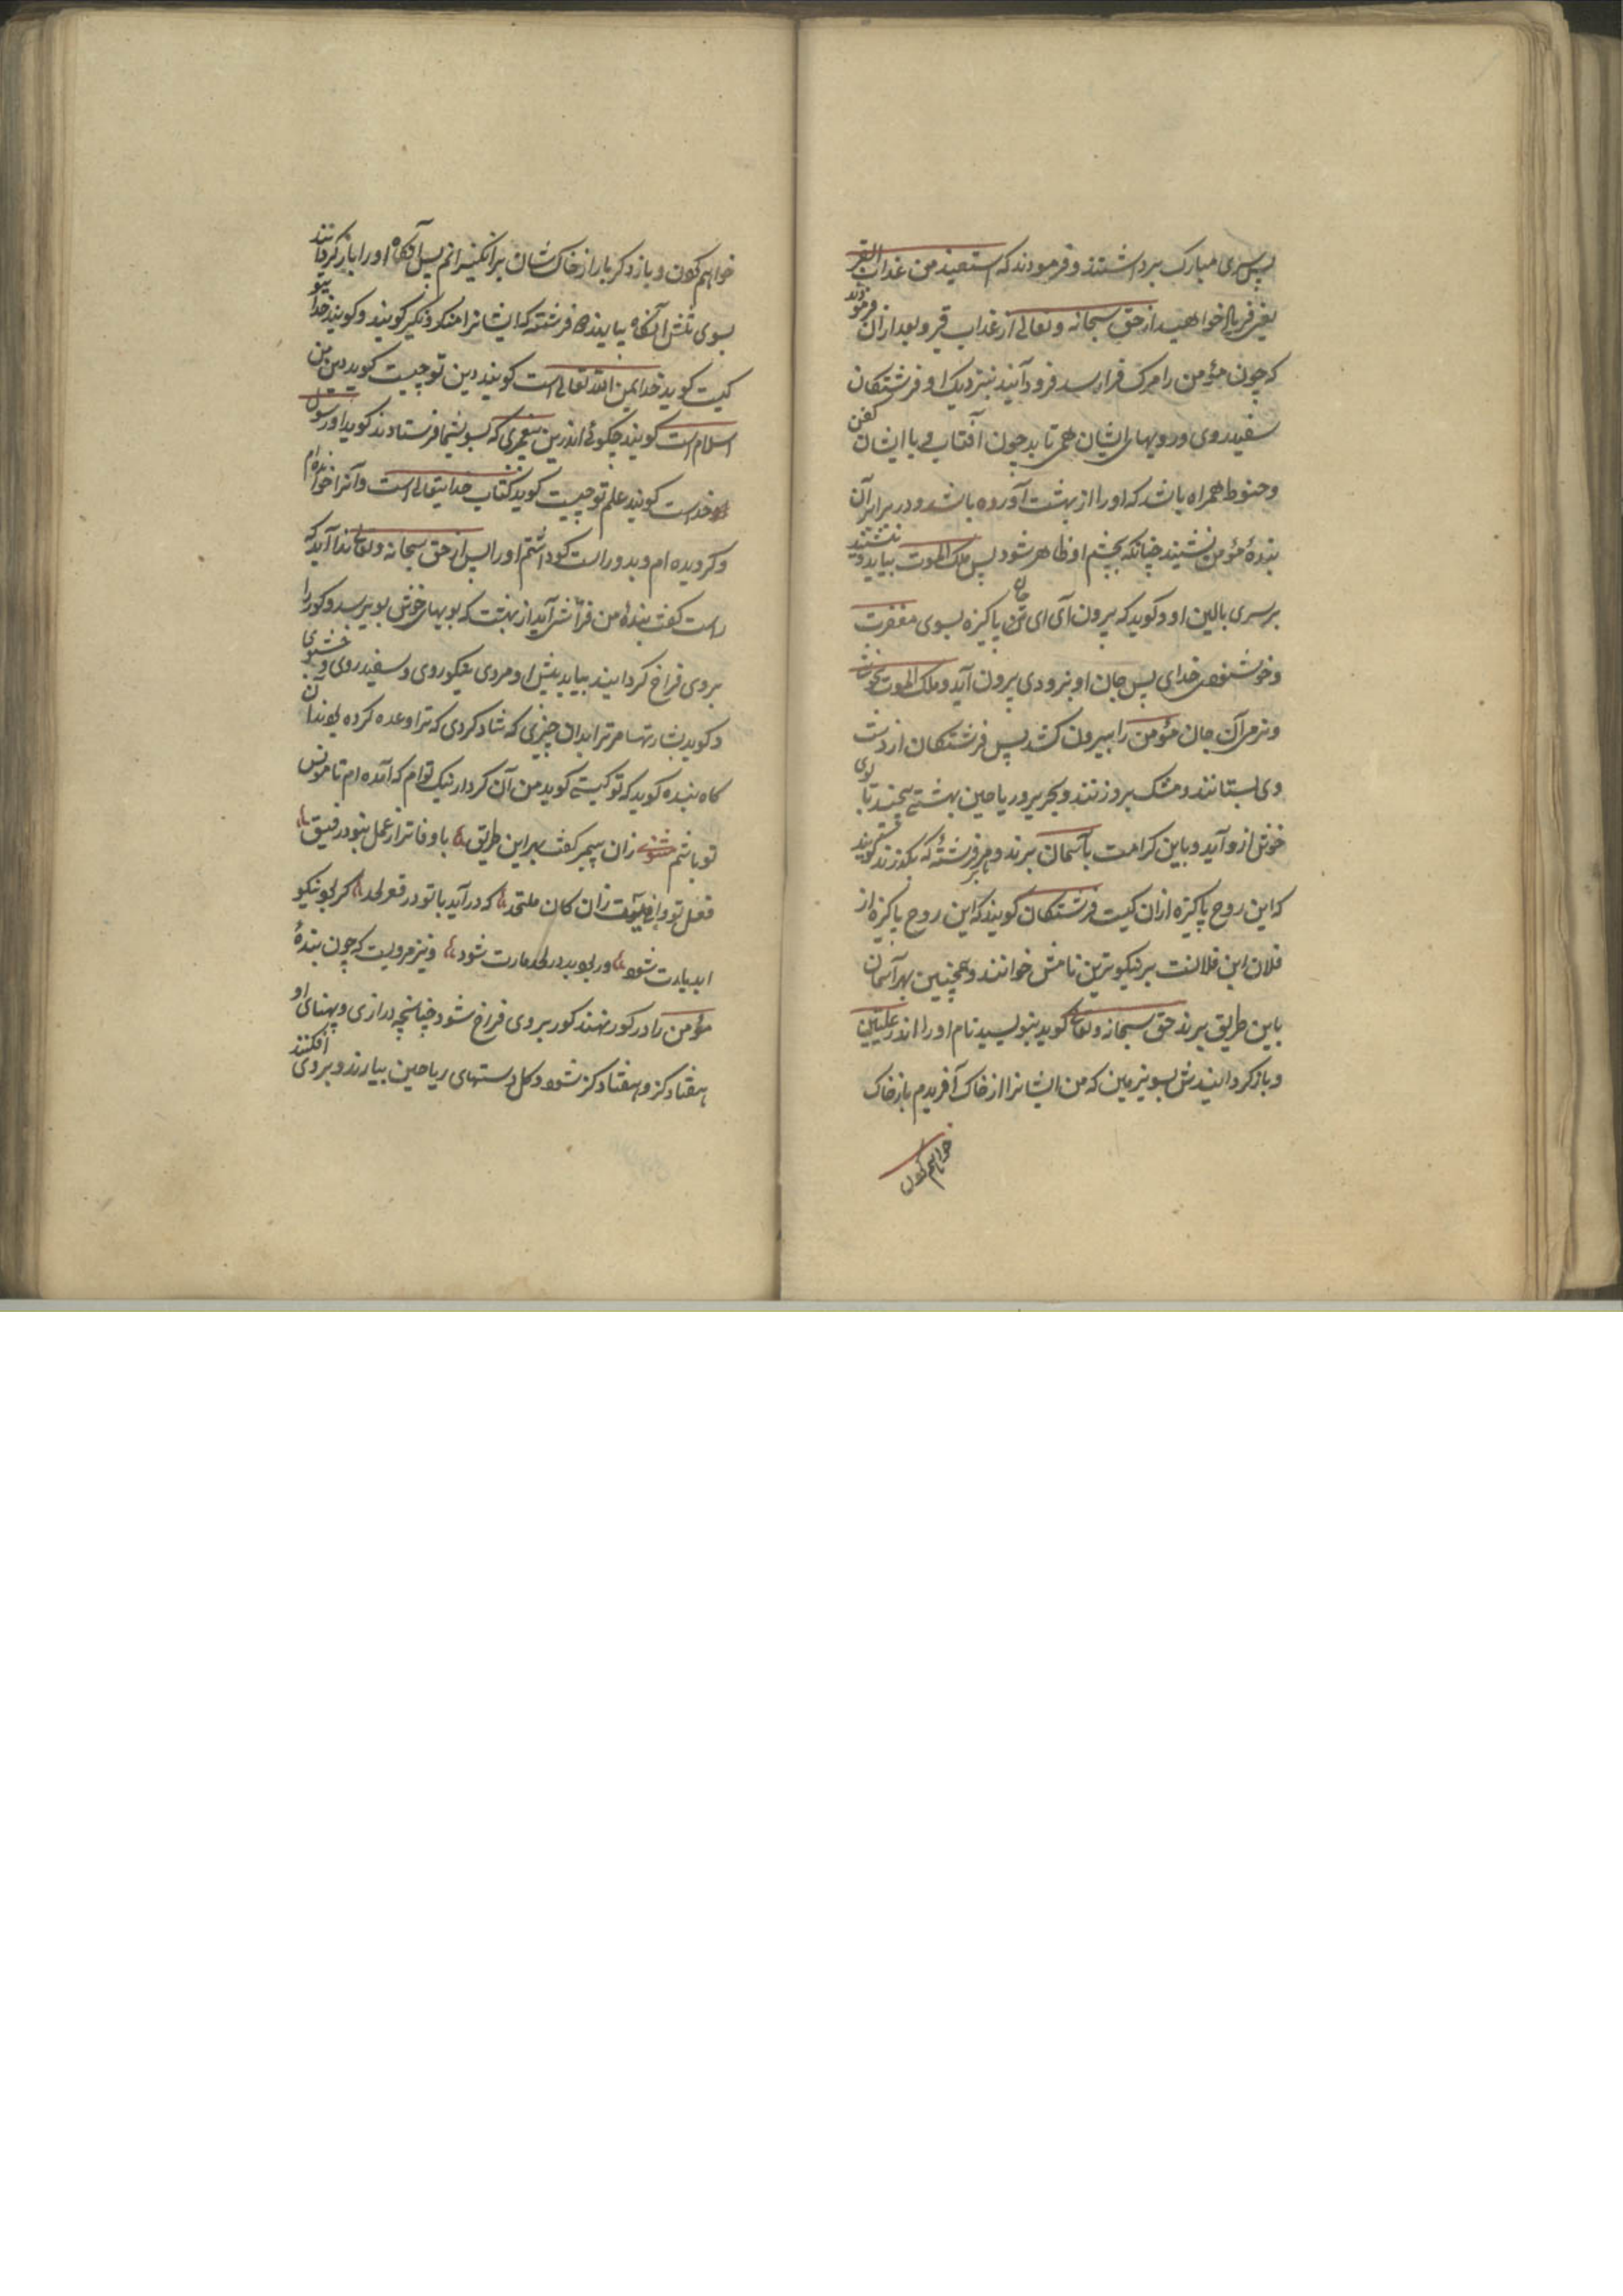 پس سری مبارک برداشتند و فرمودند که استعیذ من عذاب القبر
یعنی فریاد خواهید از حق سبحانه و تعالی از عذاب قبر و بعد ازان فرمودند
که چون مؤمن را مرک فرا رسد فرود آیند بنزدیک او فرشتکان
سفید روی و رویهای ایشان همی تابد چون آفتاب و با ایشان کفن
و حنوط همراه باشد که او را از بهشت آورده باشد و در برابر آن
بندهٔ مؤمن نشینند چنانکه بچشم او ظاهر شود پس ملک الموت بیاید و بنشیند
بر سری بالین او و کوید که بیرون آی ای جان پاکیزه بسوی مغفرت
و خوشنودی خدای پس جان او بزودی بیرون آید و ملک الموت بخوشی
و نرمی آن جان مؤمن را بیرون کشد پس فرشتکان از دست
وی بستانند و مشک برو زنند و بحریر و ریاحین بهشتی پیچند تا بوی
خوش ازو آید و باین کرامت بآسمان برند و بر هر فرشتهٔ که بکذرند کویند
که این روح پاکیزه ازان کیست فرشتکان کویند که این روح پاکیزه از
فلان ابن فلانست بر نیکوترین نامش خوانند و همچنین بهر آسمان
باین طریق برند حق سبحانه و تعالی کوید بنویسید نام او را اندر علیین
و باز کردانیدش بسوی زمین که من ایشانرا از خاک آفریدم باز خاک
خواهم کردن
خواهم کردن و باز دکر بار از خاک شان برانکیزانم پس آنکاه او را باز کردانند
بسوی تنش آنکاه بیایند دو فرشته که ایشانرا منکر و نکیر کویند و کویند خدای تو
کیست کوید خدای من الله تعالی است کویند دین تو چیست کوید دین من
اسلام است کویند چکوئی اندرین پیغمبری که بسوی شما فرستادند کوید او رسول
خداست کویند علم تو چیست کوید کتاب خدایتعالی است و آنرا خوانده ام
و کرویده ام و بدو راست کوی داشتم او را پس از حق سبحانه و تعالی ندا آید که
راست کفت بندهٔ من فراش آید از بهشت که بویهای خوش بوی رسد و کور را
بروی فراخ کردانیند بیاید پیش او مردی نیکوروی و سفید روی و خوشبوی
و کوید بشارتها مر ترا بدان چیزی که شاد کردی که ترا وعده کرده بودند آن
کاه بنده کوید که تو کیستی کوید من آن کردار نیک توام که آمده ام تا مونس
تو باشم مثنوی زان پیمبر کفت بهر این طریق با وفاتر از عمل نبود رفیق
فعل تو وافیست زان کن ملتحد که درآید با تو در قعر لحد کر بود نیکو
ابد یارت شود ور بود بد در لحد مارت شود و نیز مرویست که چون بندهٔ
مؤمن را در کور نهند کور بروی فراخ شود چنانچه درازی و پهنای او
هفتاد کز و هفتاد کز شود و کل دستهای ریاحین بیارند و بروی افکنند